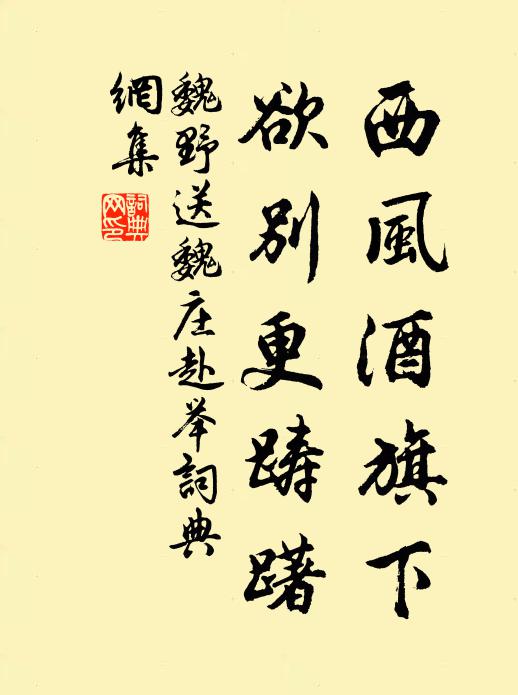 西風酒旗下
欲別更踌躇
魏野送魏庄赴举詞典
網集
詞典
网印